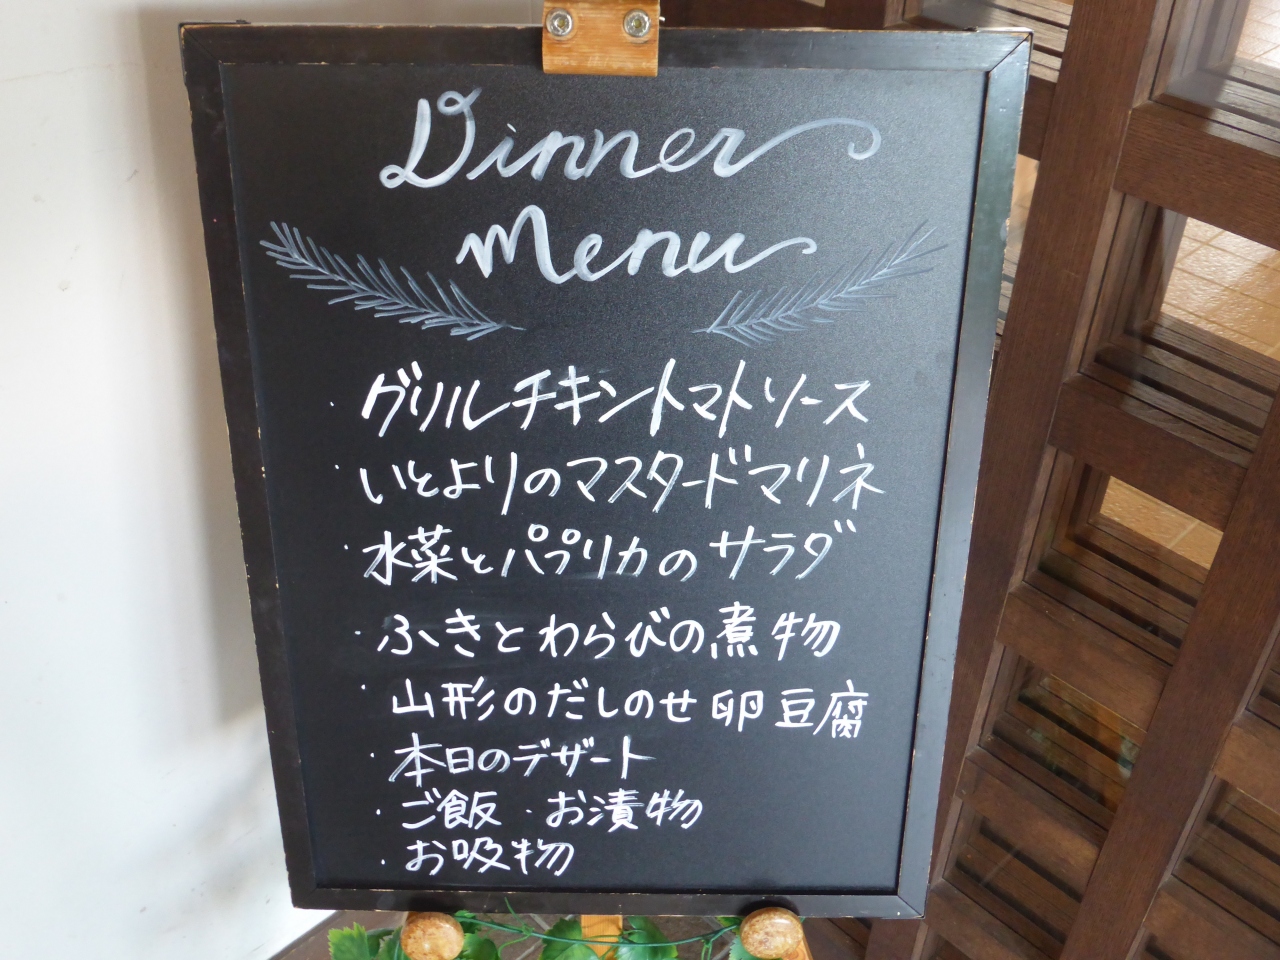 Dinner
Menu
・グリルチキントマトソース
・いとよりのマスタードマリネ
・水菜とパプリカのサラダ
・ふきとわらびの煮物
・山形のだしのせ卵豆腐
・本日のデザート
・ご飯・お漬物
・お吸物